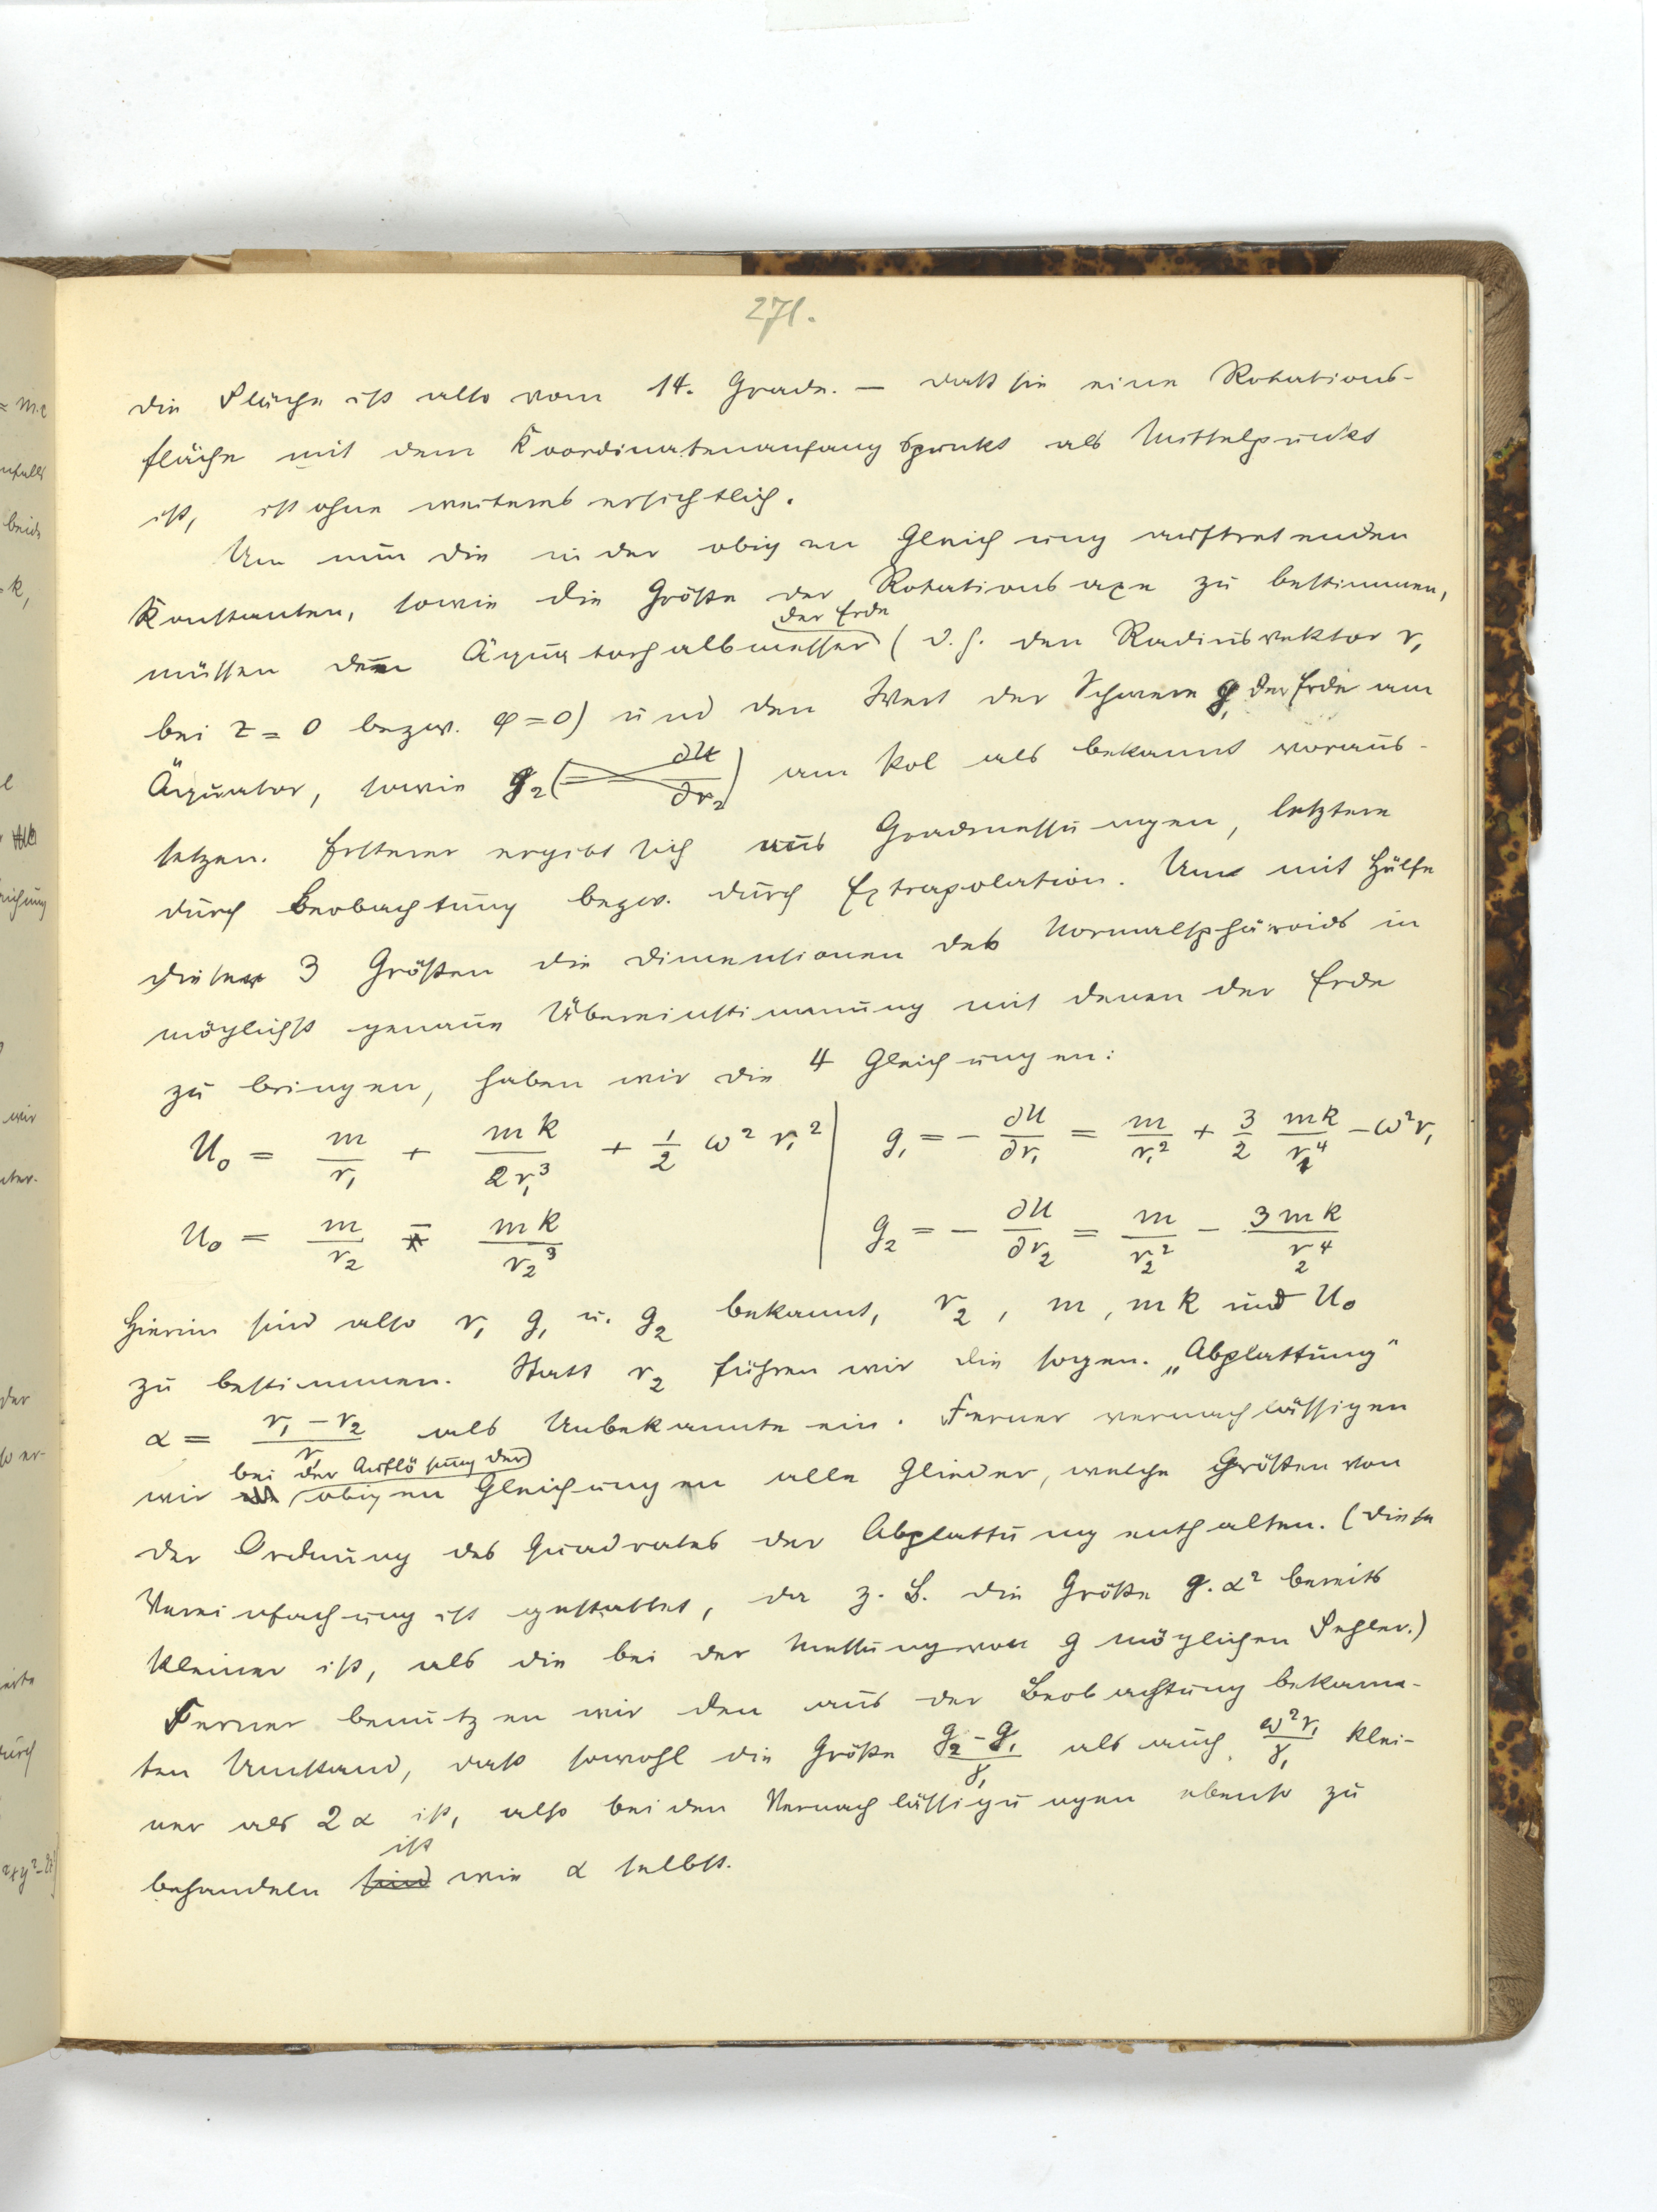 271.
die Fläche ist also vom 14. Grade. — daß sie eine Rotations-
fläche mit dem Koordinatenanfangspunkt als Mittelpunkt
ist, ist ohne weiteres ersichtlich.
Um nun die in der obigen Gleichung auftretenden
Konstanten, sowie die Größe der Rotationsaxe zu bestimmen,
der Erde
müssen den Äquatorhalbmesser (d. h. den Radiusvektor r₁
bei z = 0 bezw. φ = 0) und den Wert der Schwere g₁ der Erde am
Äquator, sowie g₂ (= – ∂U/∂r₂) am Pol als bekannt voraus-
setzen. Ersterer ergibt sich aus Gradmessungen, letztere
durch Beobachtung bezw. durch Extrapolation. Um mit Hülfe
dieser 3 Größen die Dimensionen des Normalsphäroids in
möglichst genaue Übereinstimmung mit denen der Erde
zu bringen, haben wir die 4 Gleichungen:
U₀ = m/r₁ + mk/2r₁³ + 1/2 ω² r₁² | g₁ = – ∂U/∂r₁ = m/r₁² + 3/2 mk/r₁⁴ – ω²r₁
U₀ = m/r₂ – mk/r₂³ | g₂ = – ∂U/∂r₂ = m/r₂² – 3mk/r₂⁴
Hierin sind also r₁ g₁ u. g₂ bekannt, r₂, m, mk und U₀
zu bestimmen. Statt r₂ führen wir die sogen. „Abplattung"
α = r₁ – r₂/r₁ als Unbekannte ein. Ferner vernachlässigen
bei der Auflösung der
wir obigen Gleichungen alle Glieder, welche Größen von
der Ordnung des Quadrates der Abplattung enthalten. (Diese
Vereinfachung ist gestattet, da z. B. die Größe g. α² bereits
kleiner ist, als die bei der Messung von g möglichen Fehler.)
Ferner benutzen wir den aus der Beobachtung bekann-
ten Umstand, daß sowohl die Größe g₂ – g₁/g₁ als auch ω²r₁/g₁ klei-
ner als 2α ist, also bei den Vernachlässigungen ebenso zu
ist
behandeln sind wie α selbst.